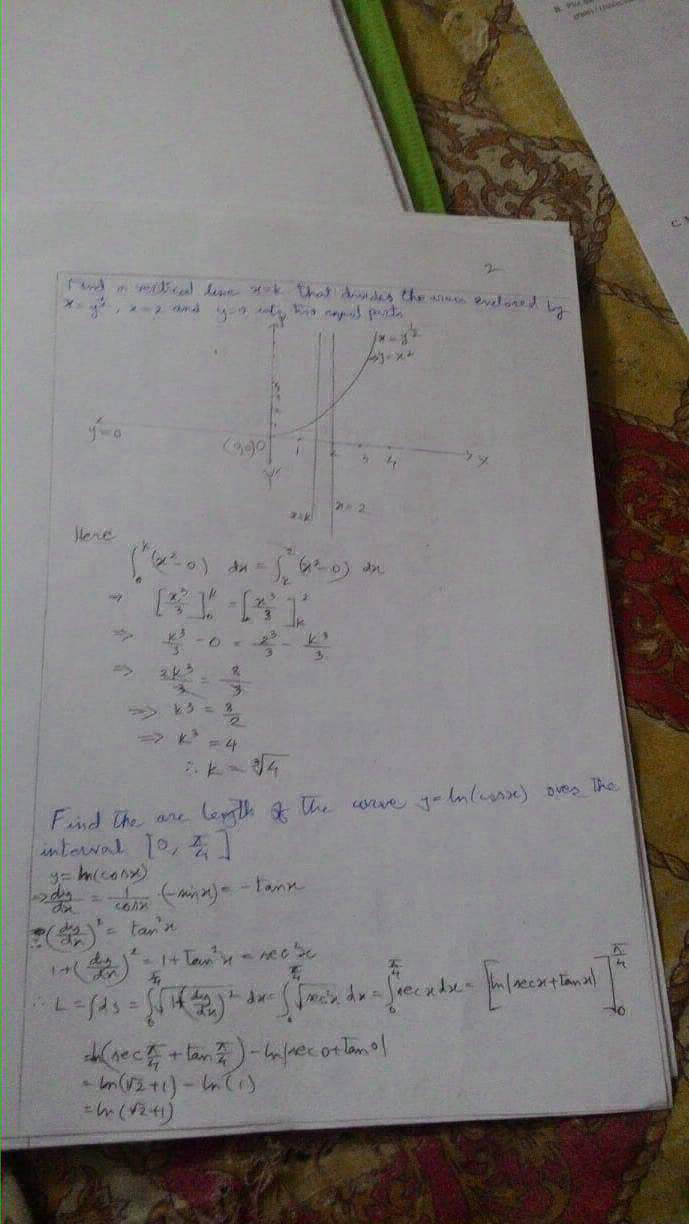 2
Find a vertical line x=k that divides the area enclosed by
x = y^½, x=2 and y=0 into two equal parts
y
x = y^½
⇒ y = x²
y=0
(0,0) O
1
2
3
4
X
y'
x=k
x=2
Here
∫₀^k (x²-0) dx = ∫_k^2 (x²-0) dx
⇒ [x³/3]₀^k = [x³/3]_k^2
⇒ k³/3 - 0 = 2³/3 - k³/3
⇒ 2k³/3 = 8/3
⇒ k³ = 8/2
⇒ k³ = 4
∴ k = ∛4
Find the arc length of the curve y=ln(cosx) over the
interval [0, π/4]
y= ln(cosx)
⇒ dy/dx = 1/cosx · (-sinx) = -tanx
∴ (dy/dx)² = tan²x
1+(dy/dx)² = 1+tan²x = sec²x
∴ L = ∫ds = ∫₀^(π/4) √(1+(dy/dx)²) dx = ∫₀^(π/4) √(sec²x) dx = ∫₀^(π/4) secx dx = [ln|secx+tanx|]₀^(π/4)
= ln(sec π/4 + tan π/4) - ln|sec0+tan0|
= ln(√2+1) - ln(1)
= ln(√2+1)